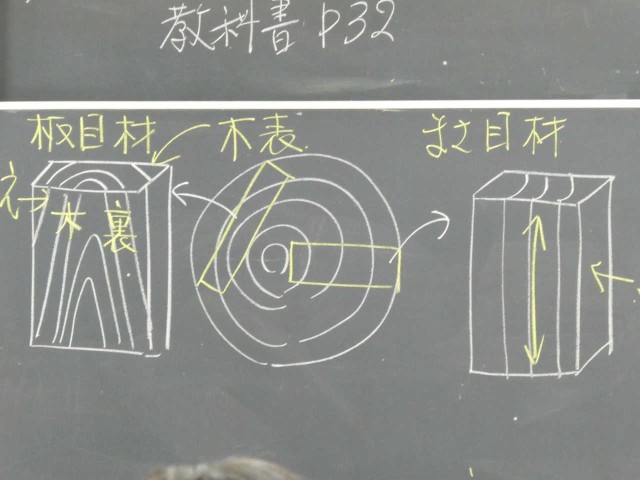 教科書 P32
板目材
木表
まさ目材
木裏